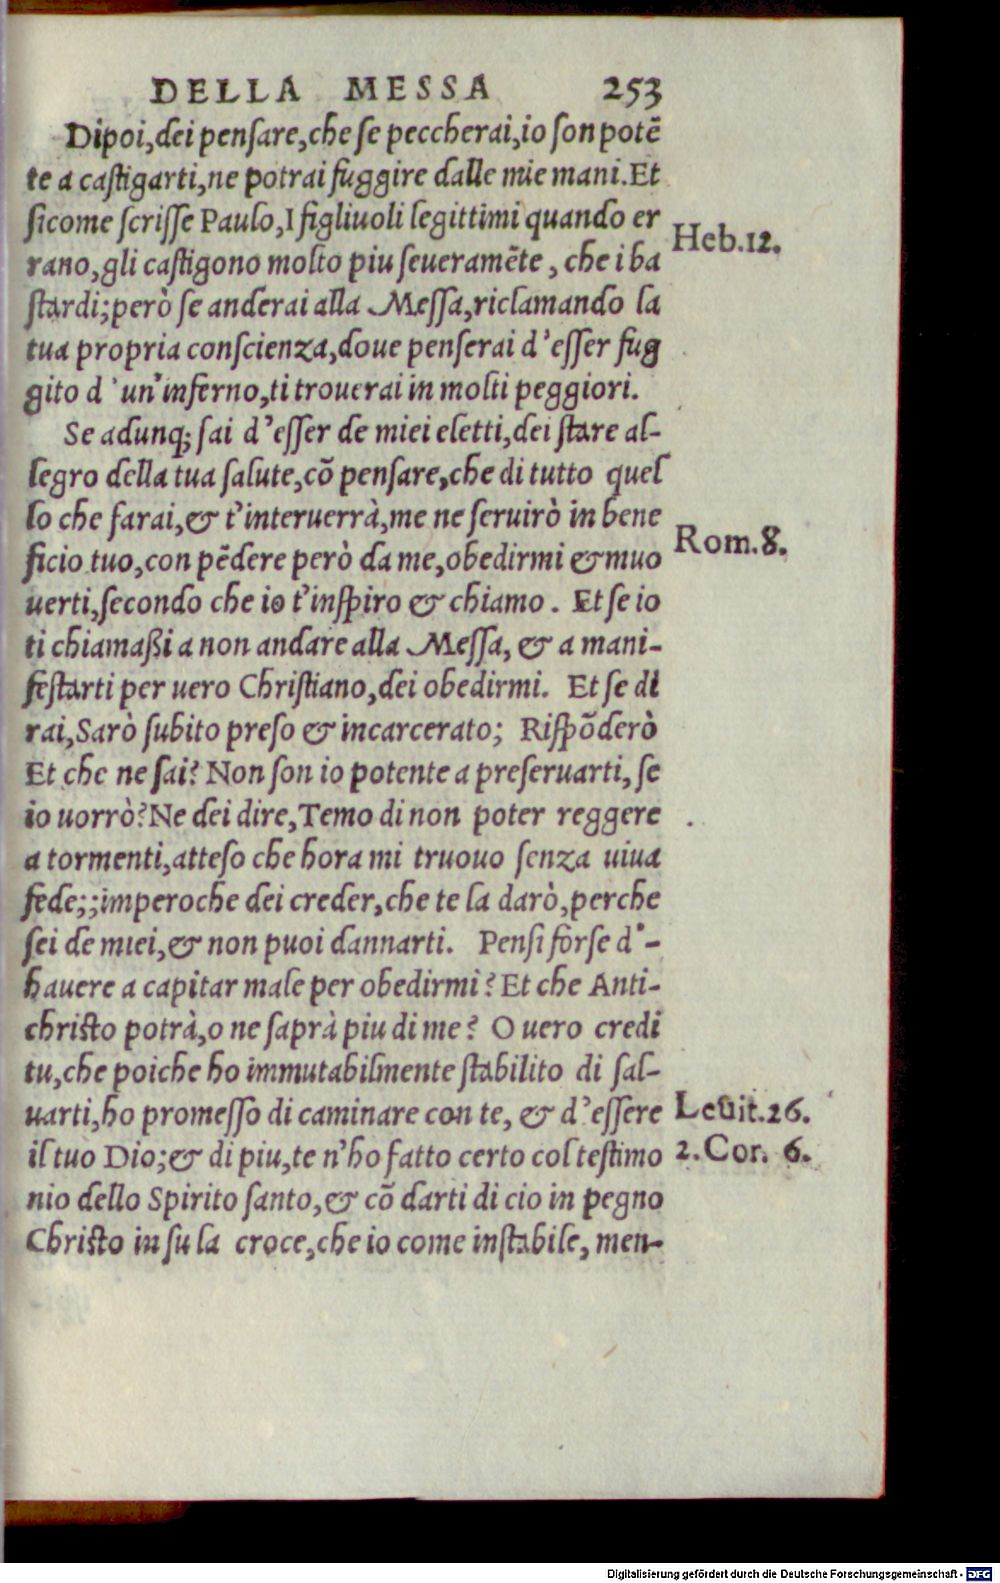 DELLA MESSA 253
Dipoi,dei pensare,che se peccherai,io son potẽ
te a castigarti,ne potrai fuggire dalle mie mani.Et
sicome scrisse Paulo,I figliuoli legittimi quando er
Heb.12.
rano,gli castigono molto piu seueramẽte, che i ba
stardi;però se anderai alla Messa,riclamando la
tua propria conscienza,doue penserai d'esser fug
gito d'un'inferno,ti trouerai in molti peggiori.
Se adunq; sai d'esser de miei eletti,dei stare al-
legro della tua salute,cõ pensare,che di tutto quel
lo che farai,& t'interuerrà,me ne seruirò in bene
Rom.8.
ficio tuo,con pẽdere però da me,obedirmi & muo
uerti,secondo che io t'inspiro & chiamo. Et se io
ti chiamaßi a non andare alla Messa, & a mani-
festarti per uero Christiano,dei obedirmi. Et se di
rai,Sarò subito preso & incarcerato; Rispõderò
Et che ne sai? Non son io potente a preseruarti, se
io uorrò?Ne dei dire,Temo di non poter reggere
a tormenti,atteso che hora mi truouo senza uiua
fede;;imperoche dei creder,che te la darò,perche
sei de miei,& non puoi dannarti. Pensi forse d'-
hauere a capitar male per obedirmi? Et che Anti-
christo potrà,o ne saprà piu di me? O uero credi
tu,che poiche ho immutabilmente stabilito di sal-
uarti,ho promesso di caminare con te, & d'essere
Leuit.26.
il tuo Dio;& di piu,te n'ho fatto certo col testimo
2.Cor. 6.
nio dello Spirito santo,& cõ darti di cio in pegno
Christo in su la croce,che io come instabile, men-
Digitalisierung gefördert durch die Deutsche Forschungsgemeinschaft - DFG